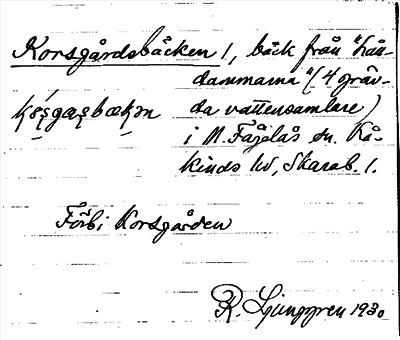 Korsgårdsbäcken 1, bäck från "hån-
dammarna" (4 gräv-
da vattensamlare)
i N. Fågelås sn. Kå-
kinds hd, Skarab. l.
Förbi Korsgården
R. Ljunggren 1930